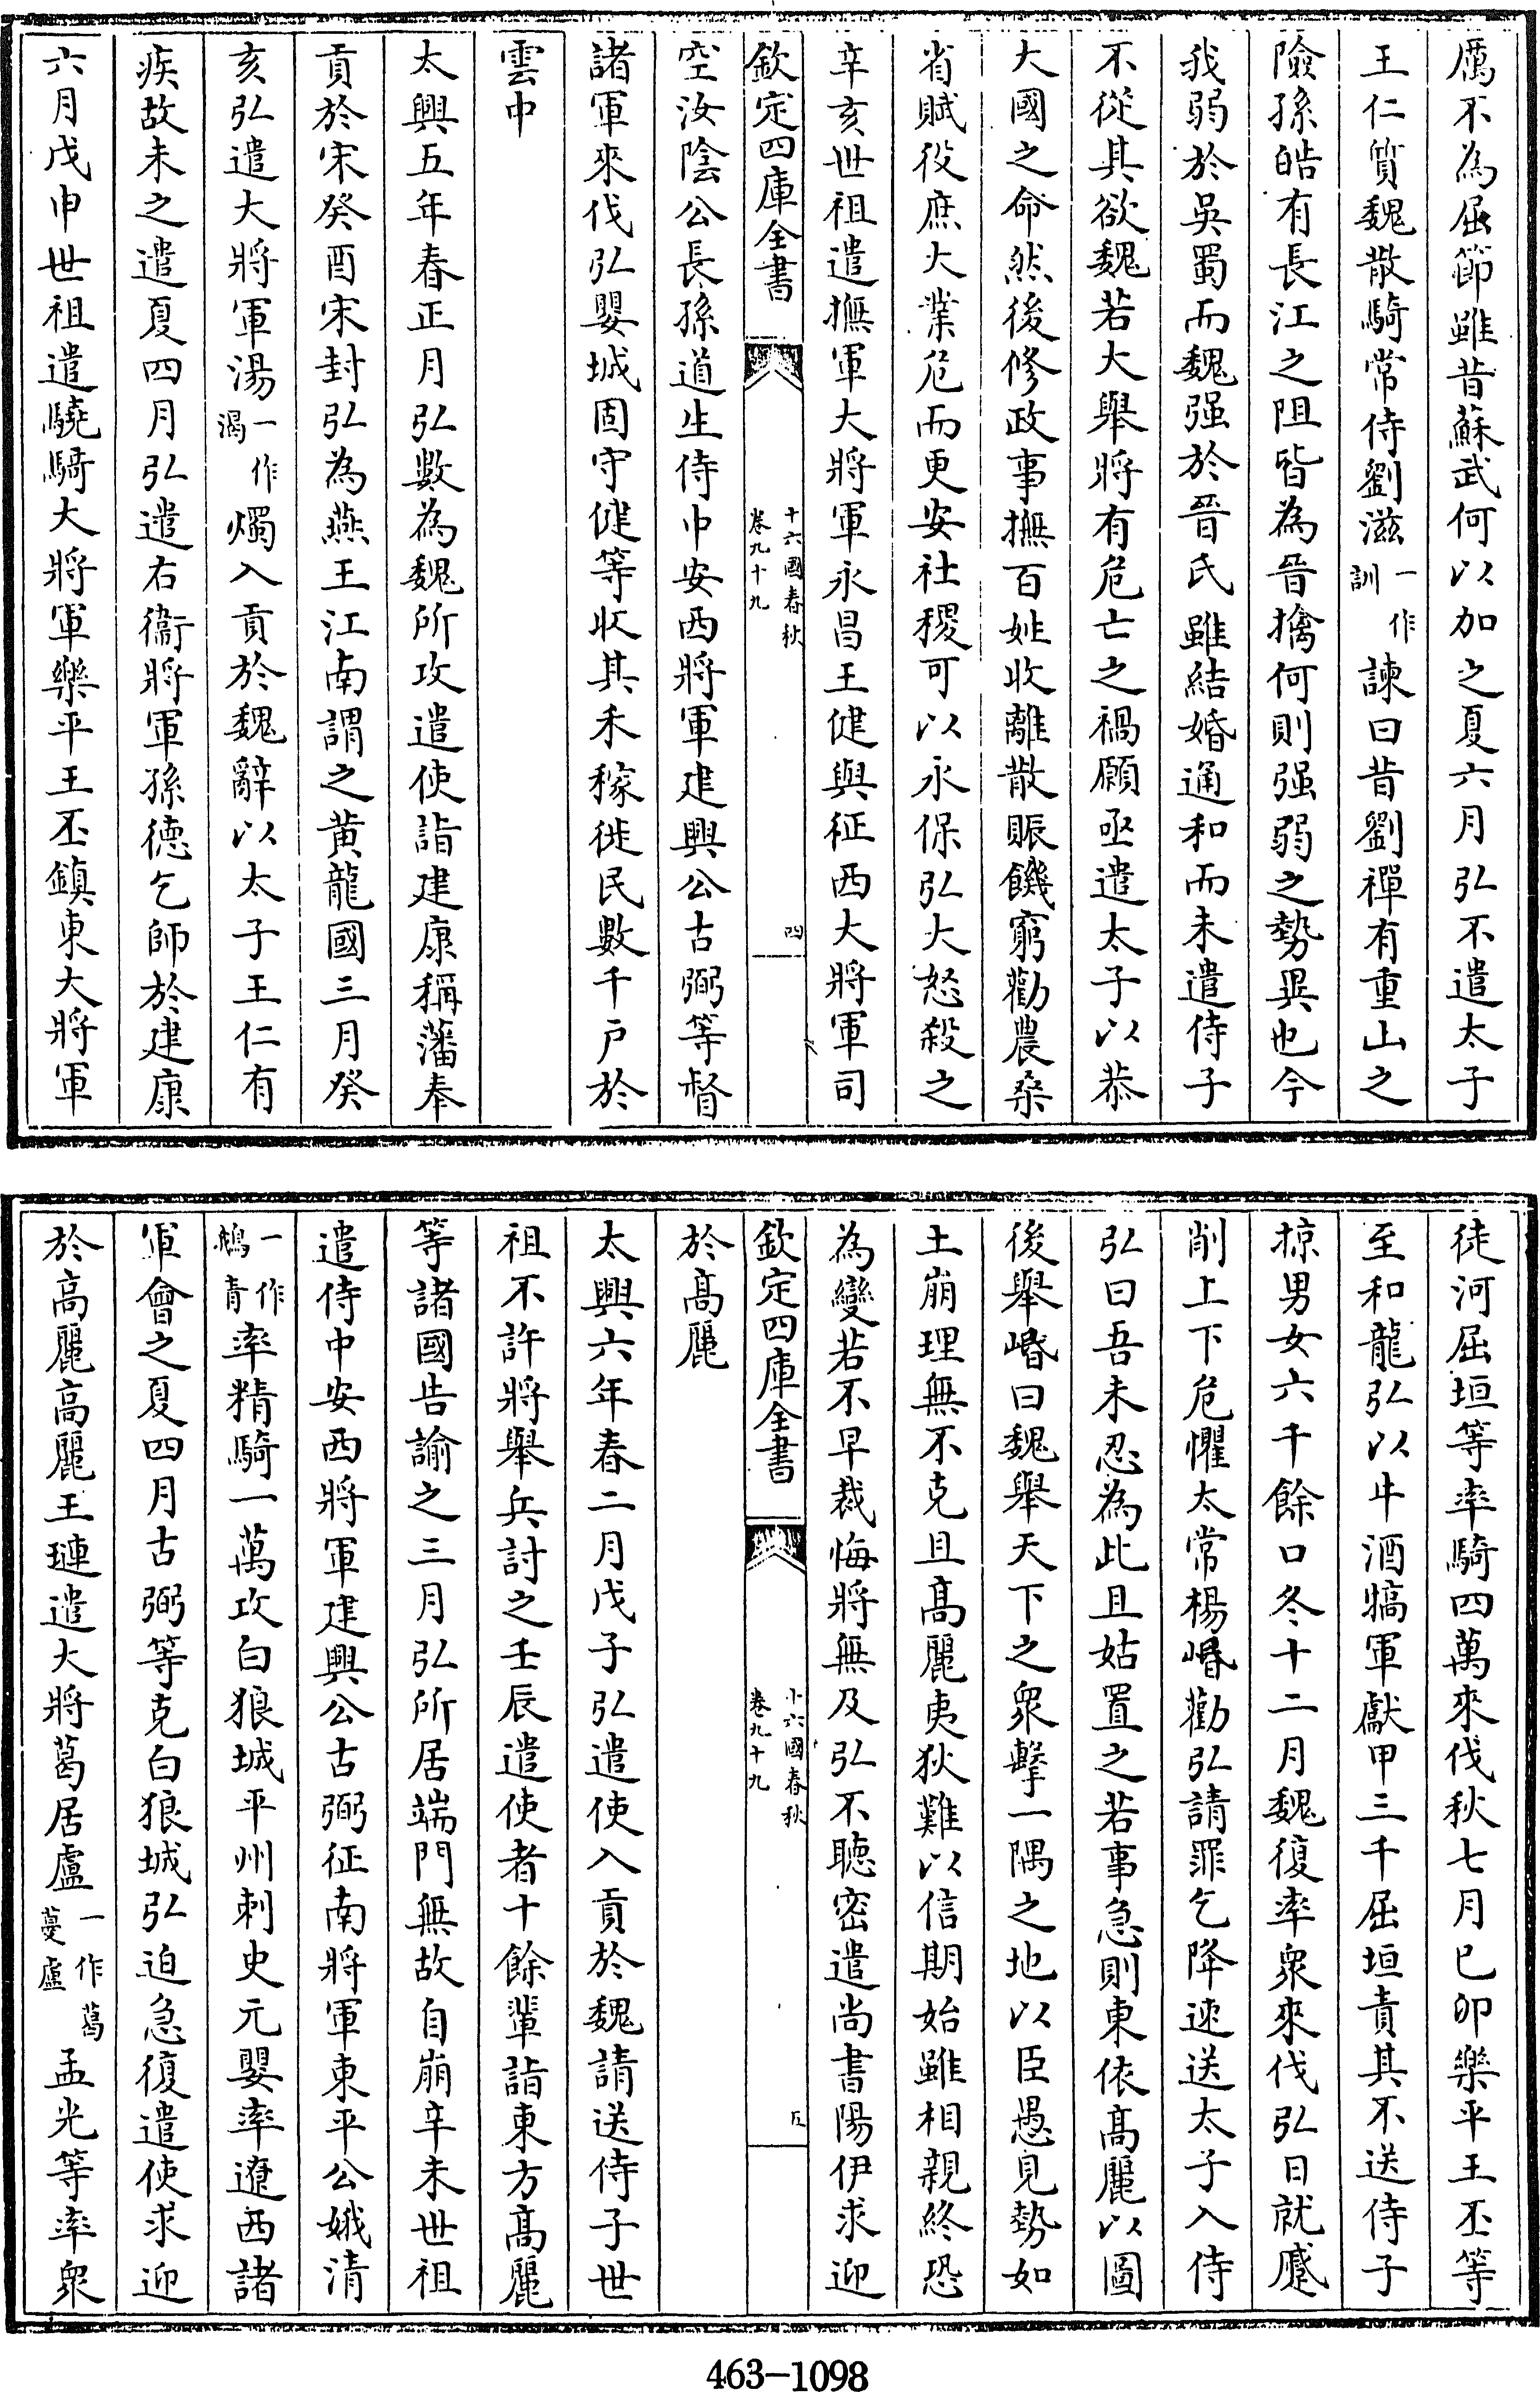 厲不為屈節雖昔蘇武何以加之夏六月弘不遣太子
王仁質魏散騎常侍劉滋一作訓諫曰昔劉禪有重山之
險孫皓有長江之阻皆為晉擒何則强弱之勢異也今
我弱於吳蜀而魏强於晉氏雖結婚通和而未遣侍子
不從其欲魏若大舉將有危亡之禍願亟遣太子以恭
大國之命然後修政事撫百姓收離散賑饑窮勸農桑
省賦役庶大業危而更安社稷可以永保弘大怒殺之
辛亥世祖遣撫軍大將軍永昌王健與征西大將軍司
欽定四庫全書
十六國春秋
卷九十九
四
空汝陰公長孫道生侍中安西將軍建興公古弼等督
諸軍來伐弘嬰城固守健等收其禾稼徙民數千戶於
雲中
太興五年春正月弘數為魏所攻遣使詣建康稱藩奉
貢於宋癸酉宋封弘為燕王江南謂之黃龍國三月癸
亥弘遣大將軍湯一作渴燭入貢於魏辭以太子王仁有
疾故未之遣夏四月弘遣右衞將軍孫德乞師於建康
六月戊申世祖遣驍騎大將軍樂平王丕鎮東大將軍
徒河屈垣等率騎四萬來伐秋七月己卯樂平王丕等
至和龍弘以牛酒犒軍獻甲三千屈垣責其不送侍子
掠男女六千餘口冬十二月魏復率衆來伐弘日就蹙
削上下危懼太常楊㟭勸弘請罪乞降速送太子入侍
弘曰吾未忍為此且姑置之若事急則東依高麗以圖
後舉㟭曰魏舉天下之衆擊一隅之地以臣愚見勢如
土崩理無不克且高麗夷狄難以信期始雖相親終恐
為變若不早裁悔將無及弘不聽密遣尚書陽伊求迎
欽定四庫全書
十六國春秋
卷九十九
五
於高麗
太興六年春二月戊子弘遣使入貢於魏請送侍子世
祖不許將舉兵討之壬辰遣使者十餘輩詣東方高麗
等諸國告諭之三月弘所居端門無故自崩辛未世祖
遣侍中安西將軍建興公古弼征南將軍東平公娥清
一作鵝青率精騎一萬攻白狼城平州刺史元嬰率遼西諸
軍會之夏四月古弼等克白狼城弘迫急復遣使求迎
於高麗高麗王璉遣大將葛居盧一作葛蔓盧孟光等率衆
463-1098